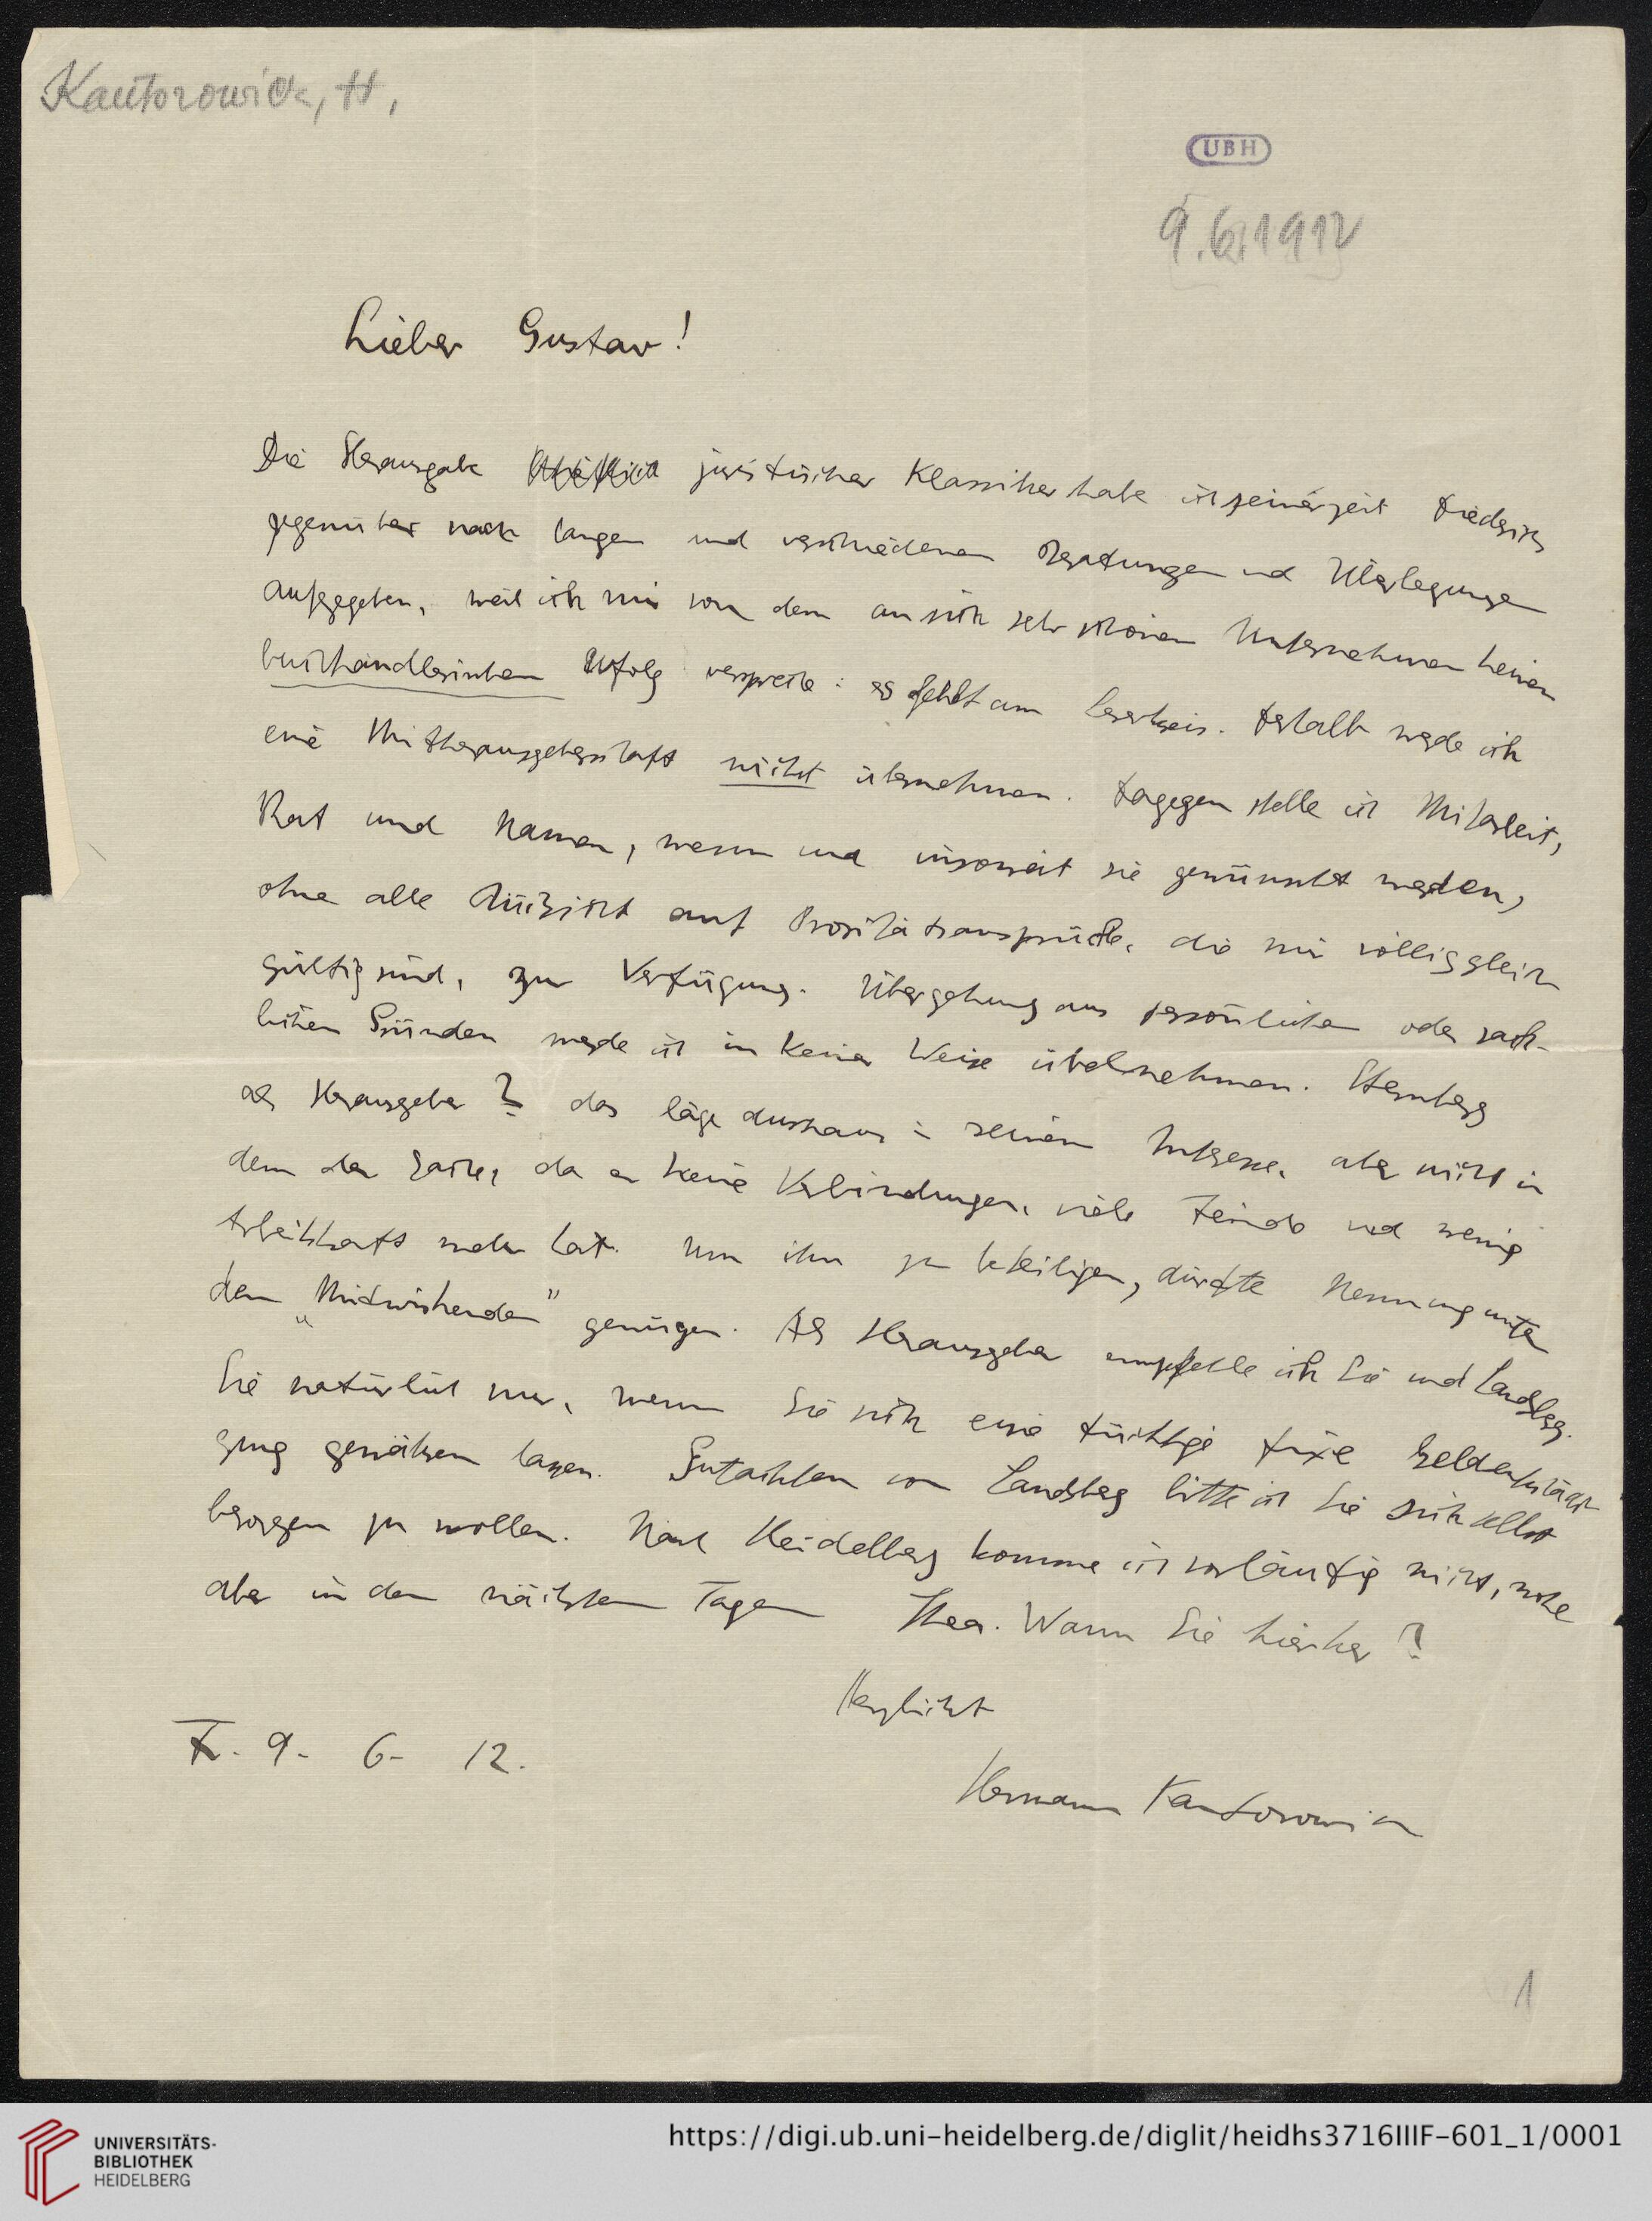 Kantorowicz, H.
UBH
9.6.1912
Lieber Gustav!
Die Herausgabe juristischer Klassiker habe ich seinerzeit Friedrich
gegenüber nach langen und verschiedenen Beratungen und Überlegungen
aufgegeben, weil ich mir von dem an sich sehr schönen Unternehmen keinen
buchhändlerischen Erfolg verspreche: es fehlt am Leserkreis. Deshalb werde ich
eine Mitherausgeberschaft nicht übernehmen. Dagegen stelle ich Mitarbeit,
Rat und Namen, wenn und insoweit sie gewünscht werden,
ohne alle Rücksicht auf Prioritätsansprüche, die mir völlig gleich
gültig sind, zur Verfügung. Übergehung aus persönlichen oder sach-
lichen Gründen werde ich in keiner Weise übelnehmen. Sternberg
als Herausgeber? das läge durchaus in seinem Interesse, aber nicht in
dem der Sache, da er keine Verbindungen, viele Feinde und wenig
Arbeitskraft mehr hat. Um ihn zu beteiligen, dürfte Nennung unter
den „Mitwirkenden" genügen. Als Herausgeber empfehle ich Sie und Landsberg.
Sie natürlich nur, wenn Sie sich eine tüchtige fixe
gewähren lassen. Gutachten von Landsberg bitte ich Sie sich selbst
besorgen zu wollen. Nach Heidelberg komme ich vorläufig nicht,
aber in den nächsten Tagen Thea. Wann Sie hierher?
Herzlichst
F. 9. 6. 12.
Hermann Kantorowicz
1
UNIVERSITÄTS-
BIBLIOTHEK
HEIDELBERG
https://digi.ub.uni-heidelberg.de/diglit/heidhs3716IIIF-601_1/0001